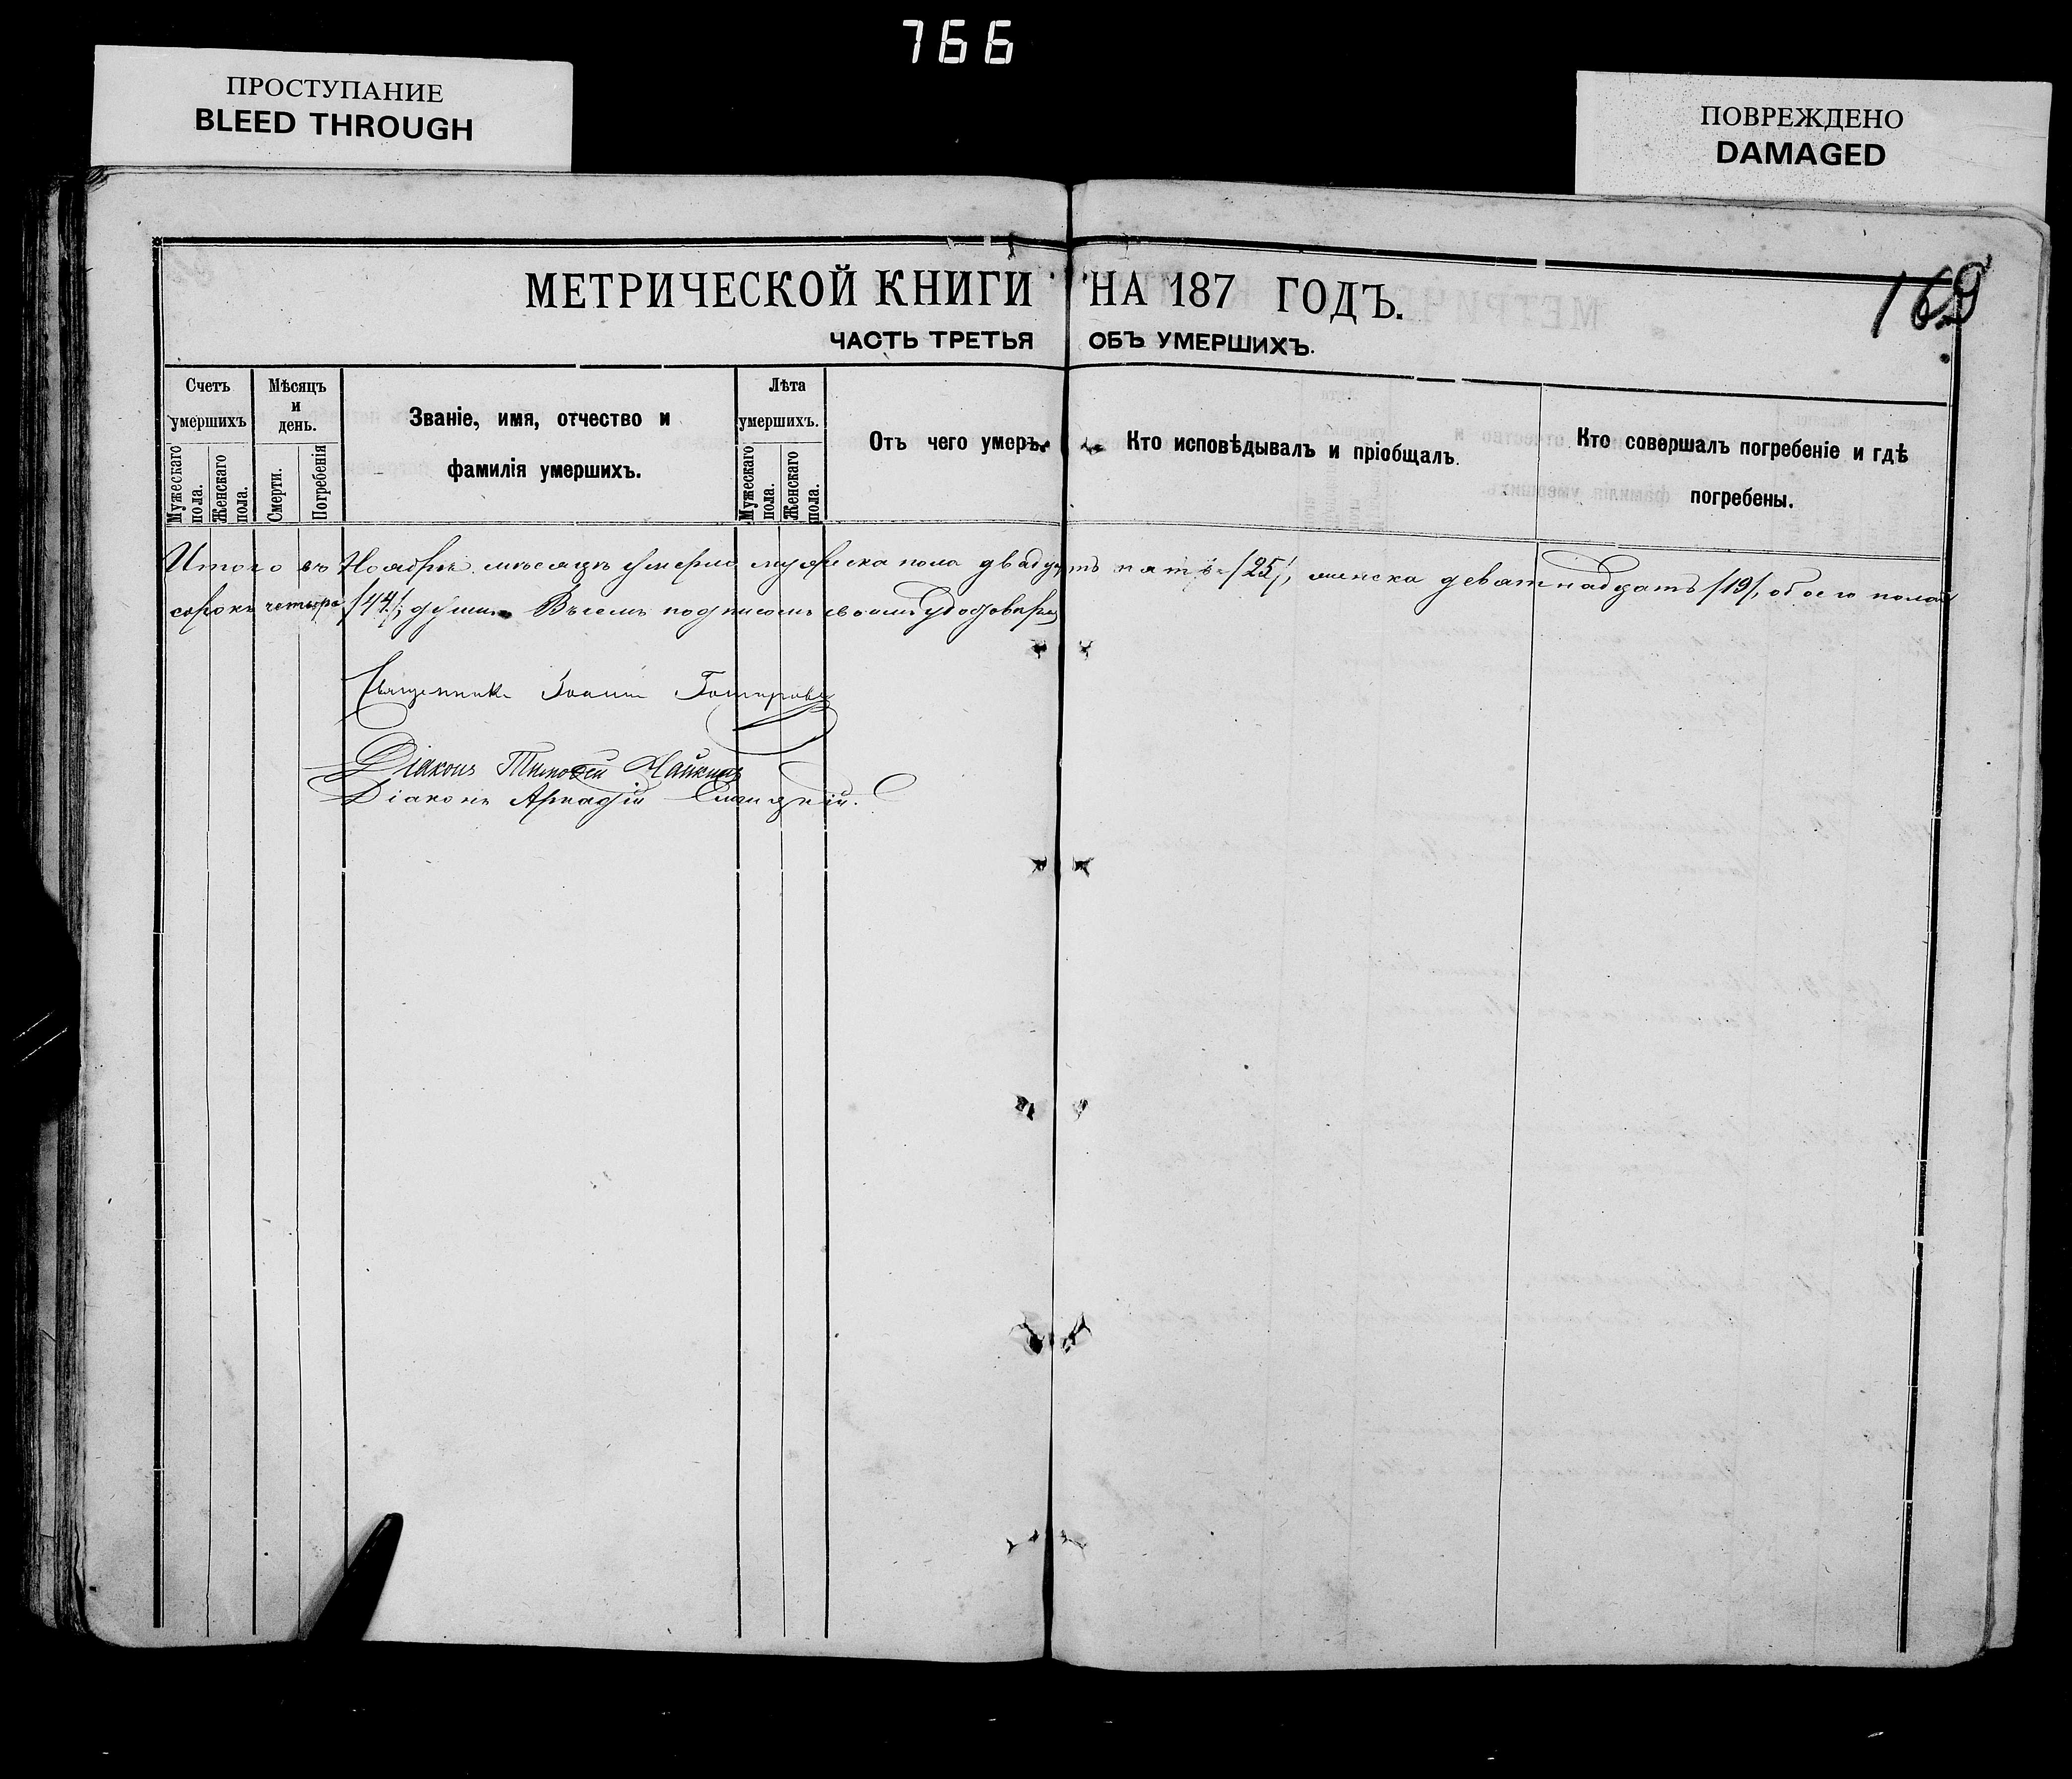 766
ПРОСТУПАНИЕ
BLEED THROUGH
ПОВРЕЖДЕНО
DAMAGED
169
МЕТРИЧЕСКОЙ КНИГИ НА 187 ГОДЪ.
ЧАСТЬ ТРЕТЬЯ ОБЪ УМЕРШИХЪ.
Счетъ умершихъ
Мужескаго пола.
Женскаго пола.
Мѣсяцъ и день.
Смерти.
Погребенія
Званіе, имя, отчество и фамилія умершихъ.
Лѣта умершихъ.
Мужескаго пола.
Женскаго пола.
Отъ чего умеръ.
Кто исповѣдывалъ и пріобщалъ.
Кто совершалъ погребеніе и гдѣ погребены.
Итого въ Ноябрѣ мѣсяцѣ умерло мужеска пола двадцать пять /25/, женска девятнадцать /19/, обоего пола
сорокъ четыре /44/, души. Въ семъ подписомъ своимъ
Священникъ Іоаннъ
Діаконъ Тимоѳей Чайкинъ
Діаконъ Аркадій